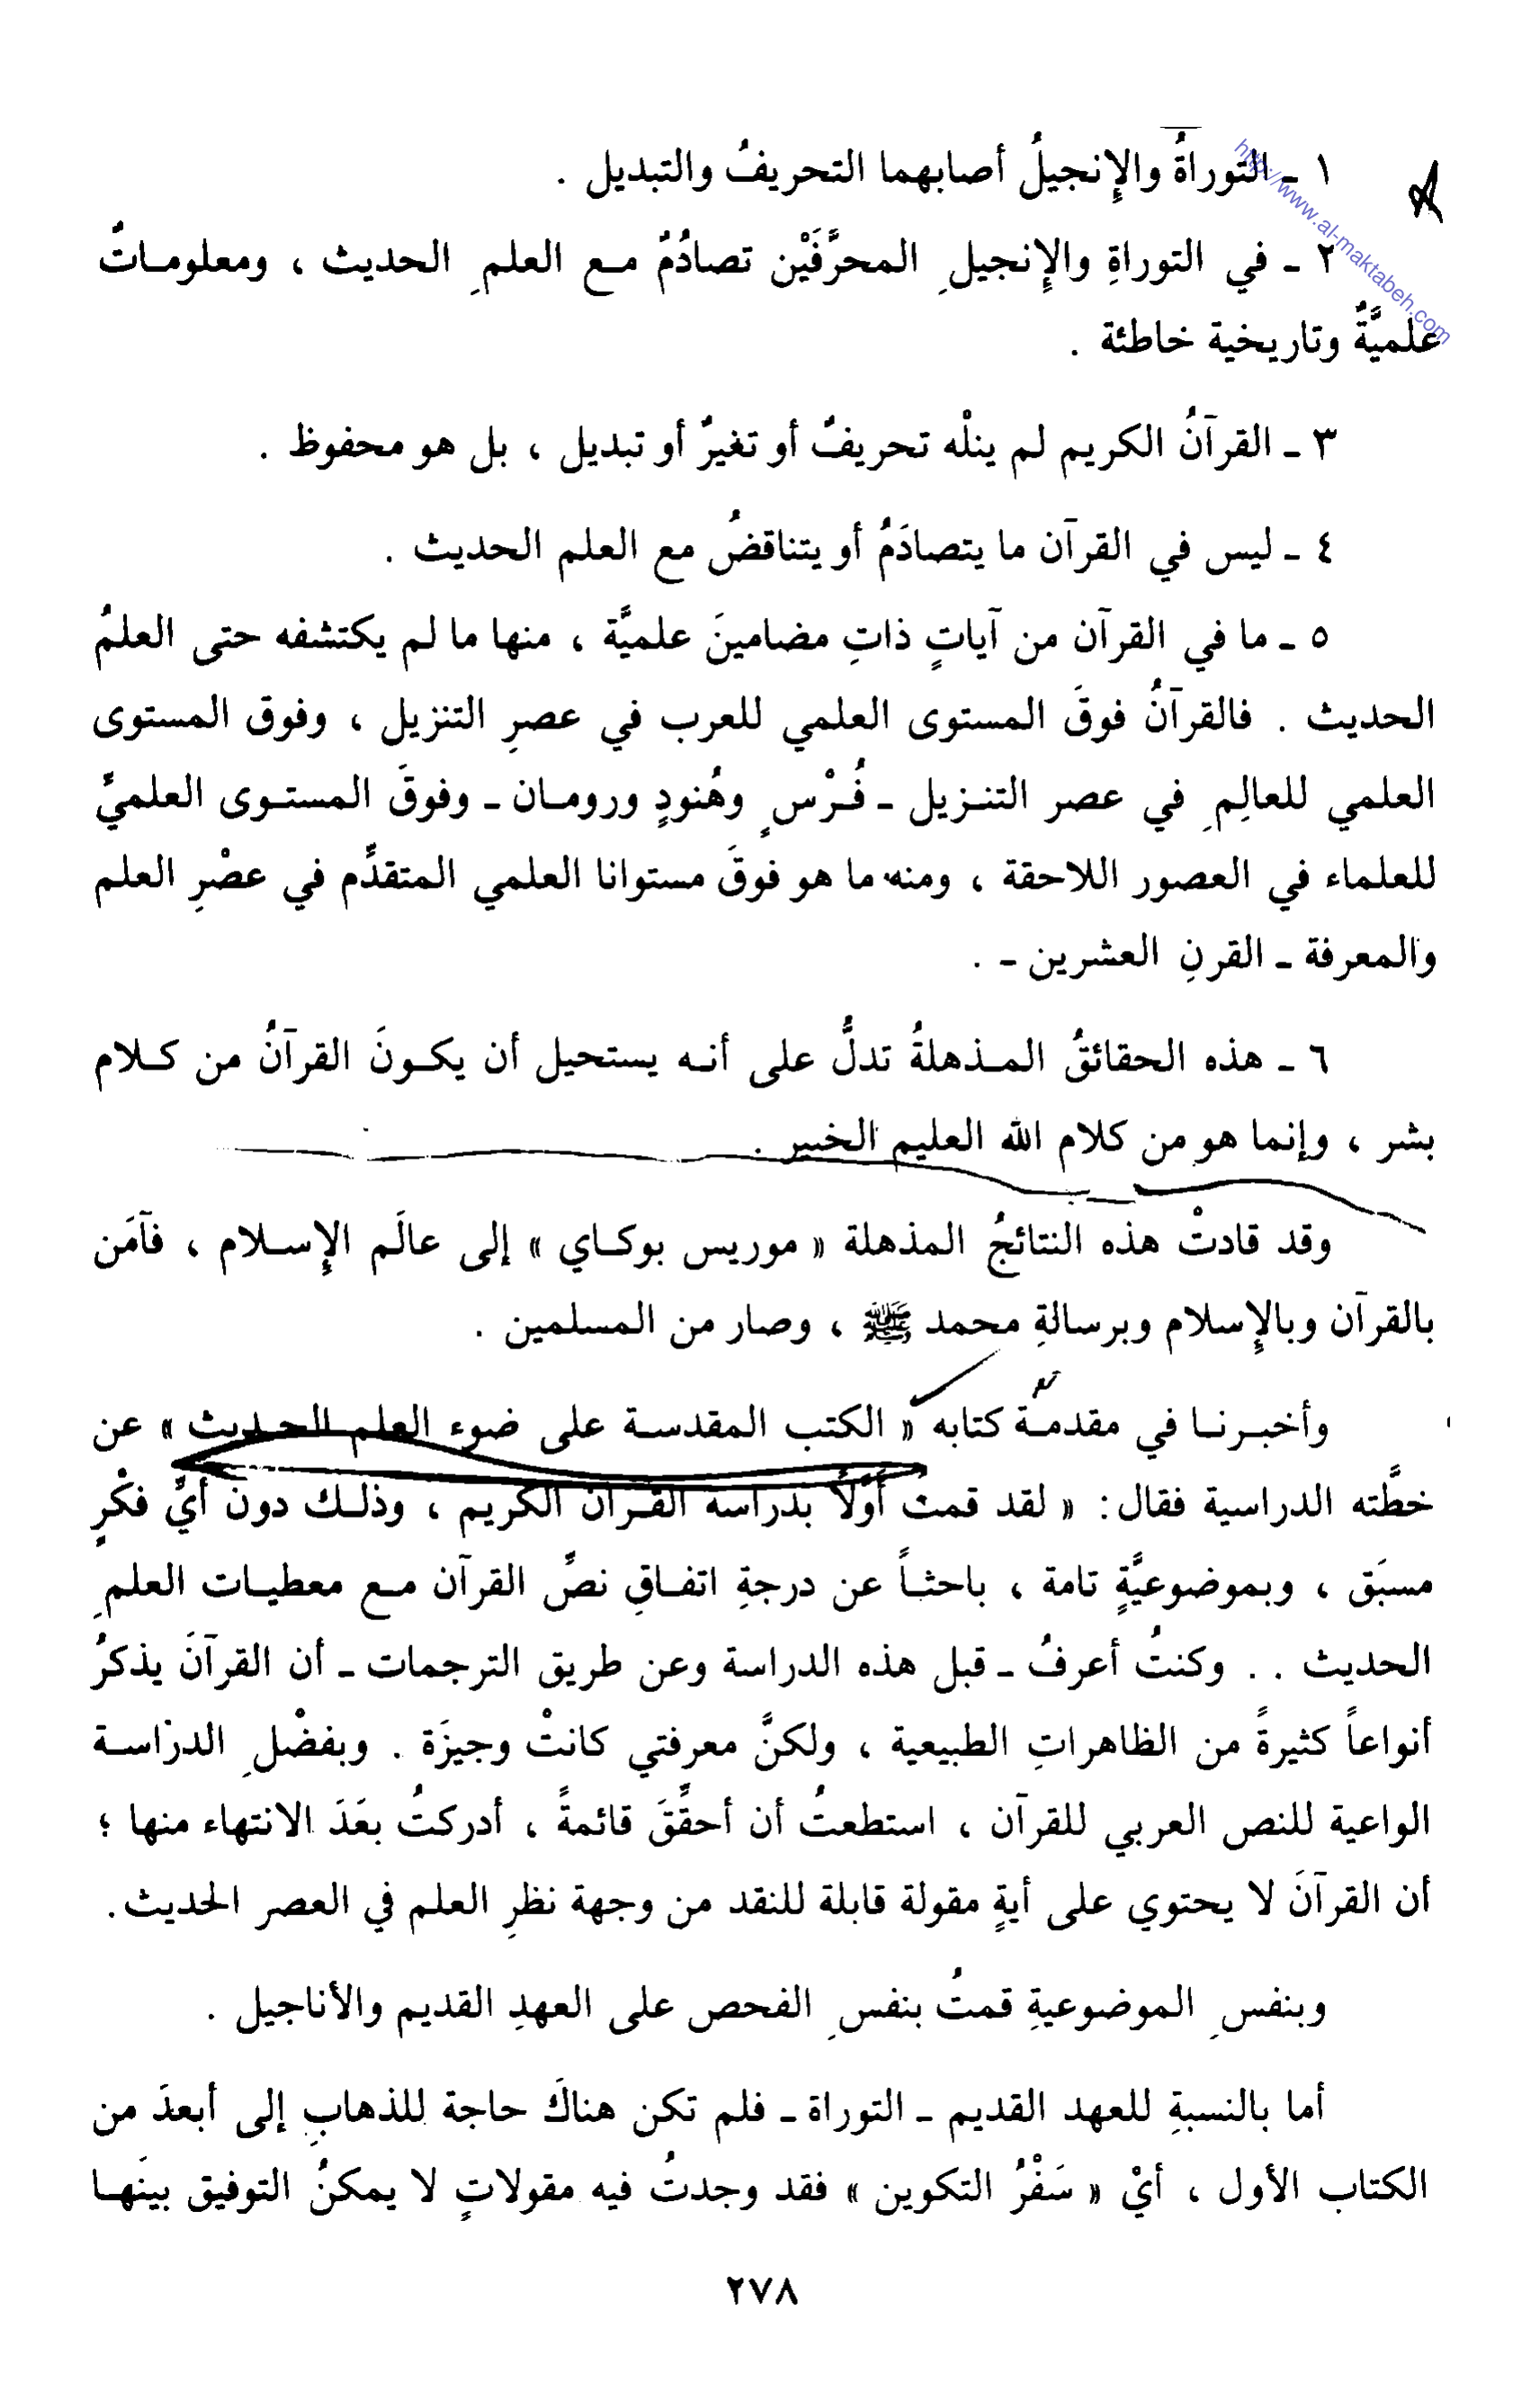 http://www.al-maktabeh.com
١ ـ التوراةُ والإِنجيلُ أصابهما التحريفُ والتبديل .
٢ ـ في التوراةِ والإِنجيلِ المحرَّفَيْن تصادُمٌ مـع العلمِ الحديث ، ومعلومـاتٌ
علميَّةٌ وتاريخية خاطئة .
٣ ـ القرآنُ الكريم لم ينلْه تحريفٌ أو تغيرٌ أو تبديل ، بل هو محفوظ .
٤ ـ ليس في القرآن ما يتصادَمُ أو يتناقضُ مع العلم الحديث .
٥ ـ ما في القرآن من آياتٍ ذاتِ مضامينَ علميَّة ، منها ما لم يكتشفه حتى العلمُ
الحديث . فالقرآنُ فوقَ المستوى العلمي للعرب في عصرِ التنزيل ، وفوق المستوى
العلمي للعالِمِ في عصر التنـزيل ـ فُـرْسٍ وهُنودٍ ورومـان ـ وفوقَ المستـوى العلميِّ
للعلماء في العصور اللاحقة ، ومنه ما هو فوقَ مستوانا العلمي المتقدِّم في عصْرِ العلم
والمعرفة ـ القرنِ العشرين ـ .
٦ ـ هذه الحقائقُ المـذهلةُ تدلُّ على أنـه يستحيل أن يكـونَ القرآنُ من كـلام
بشر ، وإنما هو من كلام الله العليم الخبير .
وقد قادتْ هذه النتائجُ المذهلة « موريس بوكـاي » إلى عالَم الإِسـلام ، فآمَن
بالقرآن وبالإِسلام وبرسالةِ محمد ﷺ ، وصار من المسلمين .
وأخبـرنـا في مقدمـة كتابه « الكتب المقدسـة على ضوء العلم الحـديث » عن
خطَّته الدراسية فقال : « لقد قمت أوَّلاً بدراسة القـرآن الكريم ، وذلـك دون أيِّ فكْرٍ
مسبَق ، وبموضوعيَّةٍ تامة ، باحثـاً عن درجةِ اتفـاقِ نصِّ القرآن مـع معطيـات العلمِ
الحديث . . وكنتُ أعرفُ ـ قبل هذه الدراسة وعن طريق الترجمات ـ أن القرآنَ يذكرُ
أنواعاً كثيرةً من الظاهراتِ الطبيعية ، ولكنَّ معرفتي كانتْ وجيزَة . وبفضْلِ الدراسـة
الواعية للنص العربي للقرآن ، استطعتُ أن أحقِّقَ قائمةً ، أدركتُ بعَدَ الانتهاء منها ؛
أن القرآنَ لا يحتوي على أيةٍ مقولة قابلة للنقد من وجهة نظرِ العلم في العصر الحديث .
وبنفسِ الموضوعيةِ قمتُ بنفسِ الفحص على العهدِ القديم والأناجيل .
أما بالنسبةِ للعهد القديم ـ التوراة ـ فلم تكن هناكَ حاجة للذهابِ إلى أبعدَ من
الكتاب الأول ، أيْ « سَفْرُ التكوين » فقد وجدتُ فيه مقولاتٍ لا يمكنُ التوفيق بينَهـا
٢٧٨